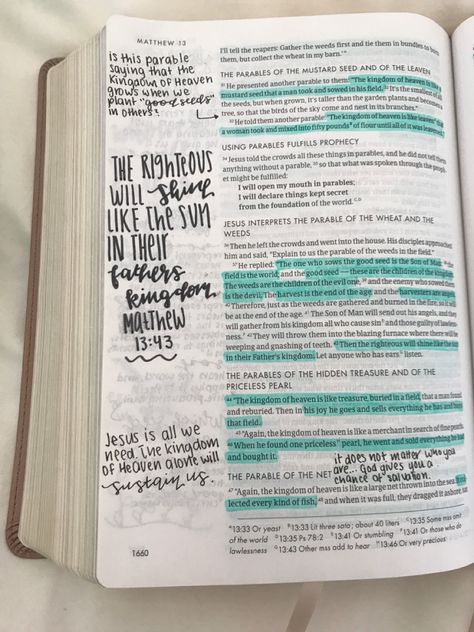 MATTHEW 13
is this parable
saying that the
Kingdom of Heaven
grows when we
plant "good seeds"
in others?
THE RIGHTEOUS
WILL shine
LIKE THE SUN
IN THEIR
fathers
kingdom
MATTHEW
13:43
Jesus is all we
need. The kingdom
of Heaven alone will
sustain us.
1660
I'll tell the reapers: Gather the weeds first and tie them in bundles to burn
them, but collect the wheat in my barn.'"
THE PARABLES OF THE MUSTARD SEED AND OF THE LEAVEN
31 He presented another parable to them: "The kingdom of heaven is like a
mustard seed that a man took and sowed in his field. 32 It's the smallest of all
the seeds, but when grown, it's taller than the garden plants and becomes a
tree, so that the birds of the sky come and nest in its branches."
33 He told them another parable: "The kingdom of heaven is like leaven that
a woman took and mixed into fifty pounds of flour until all of it was leavened."
USING PARABLES FULFILLS PROPHECY
34 Jesus told the crowds all these things in parables, and he did not tell them
anything without a parable, 35 so that what was spoken through the prophet
might be fulfilled:
I will open my mouth in parables;
I will declare things kept secret
from the foundation of the world.
JESUS INTERPRETS THE PARABLE OF THE WHEAT AND THE
WEEDS
36 Then he left the crowds and went into the house. His disciples approached
him and said, "Explain to us the parable of the weeds in the field."
37 He replied: "The one who sows the good seed is the Son of Man; 38 the
field is the world; and the good seed — these are the children of the kingdom.
The weeds are the children of the evil one, 39 and the enemy who sowed them
is the devil. The harvest is the end of the age, and the harvesters are angels.
40 Therefore, just as the weeds are gathered and burned in the fire, so it will
be at the end of the age. 41 The Son of Man will send out his angels, and they
will gather from his kingdom all who cause sin and those guilty of lawless-
ness. 42 They will throw them into the blazing furnace where there will be
weeping and gnashing of teeth. 43 Then the righteous will shine like the sun
in their Father's kingdom. Let anyone who has ears listen.
THE PARABLES OF THE HIDDEN TREASURE AND OF THE
PRICELESS PEARL
44 "The kingdom of heaven is like treasure, buried in a field, that a man found
and reburied. Then in his joy he goes and sells everything he has and buys
that field.
45 "Again, the kingdom of heaven is like a merchant in search of fine pearls.
46 When he found one priceless pearl, he went and sold everything he had
and bought it.
it does not matter who you
are... God gives you a
chance at salvation.
THE PARABLE OF THE NET
47 "Again, the kingdom of heaven is like a large net thrown into the sea. It col-
lected every kind of fish, 48 and when it was full, they dragged it ashore, sat
13:33 Or yeast 13:33 Lit three sata; about 40 liters 13:35 Some mss omit
of the world 13:35 Ps 78:2 13:41 Or stumbling 13:41 Or those who do
lawlessness 13:43 Other mss add to hear 13:46 Or very precious